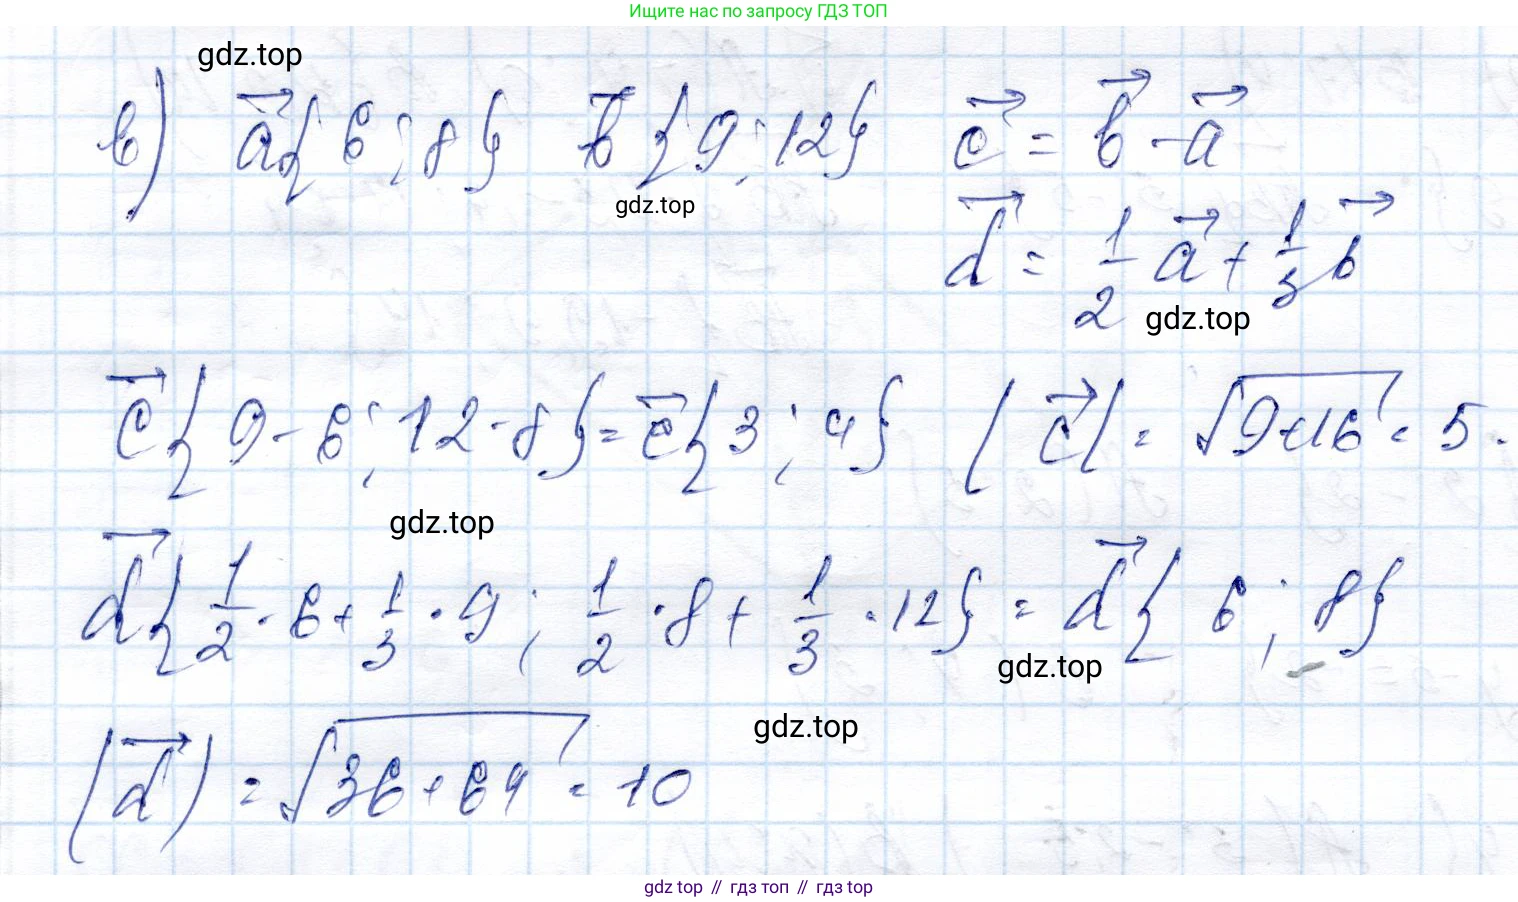 Ищите нас по запросу ГДЗ ТОП
gdz.top
в) a⃗{6;8} b⃗{9;12} c⃗ = b⃗ - a⃗
gdz.top
d⃗ = 1/2 a⃗ + 1/3 b⃗
gdz.top
c⃗{9-6;12-8} = c⃗{3;4} |c⃗| = √9+16 = 5.
gdz.top
d⃗{1/2·6+1/3·9; 1/2·8+1/3·12} = d⃗{6;8}
gdz.top
gdz.top
|d⃗| = √36+64 = 10
gdz top // гдз топ // гдз top